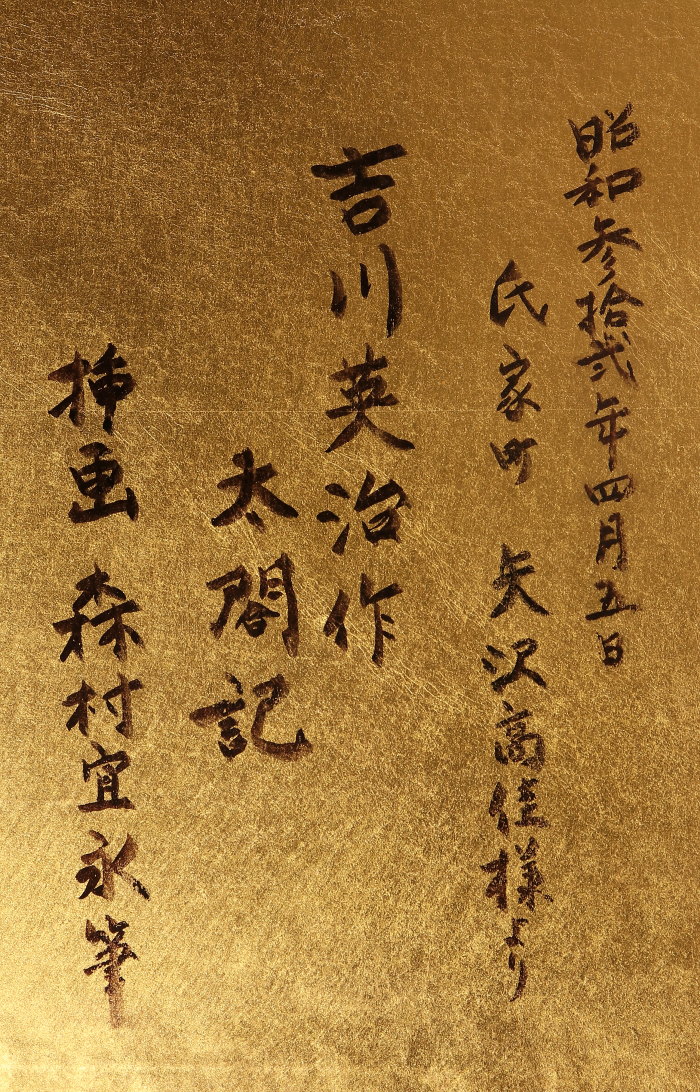 昭和参拾弐年四月五日
氏家町 矢沢高佳様より
吉川英治作
太閤記
挿画 森村宜永筆